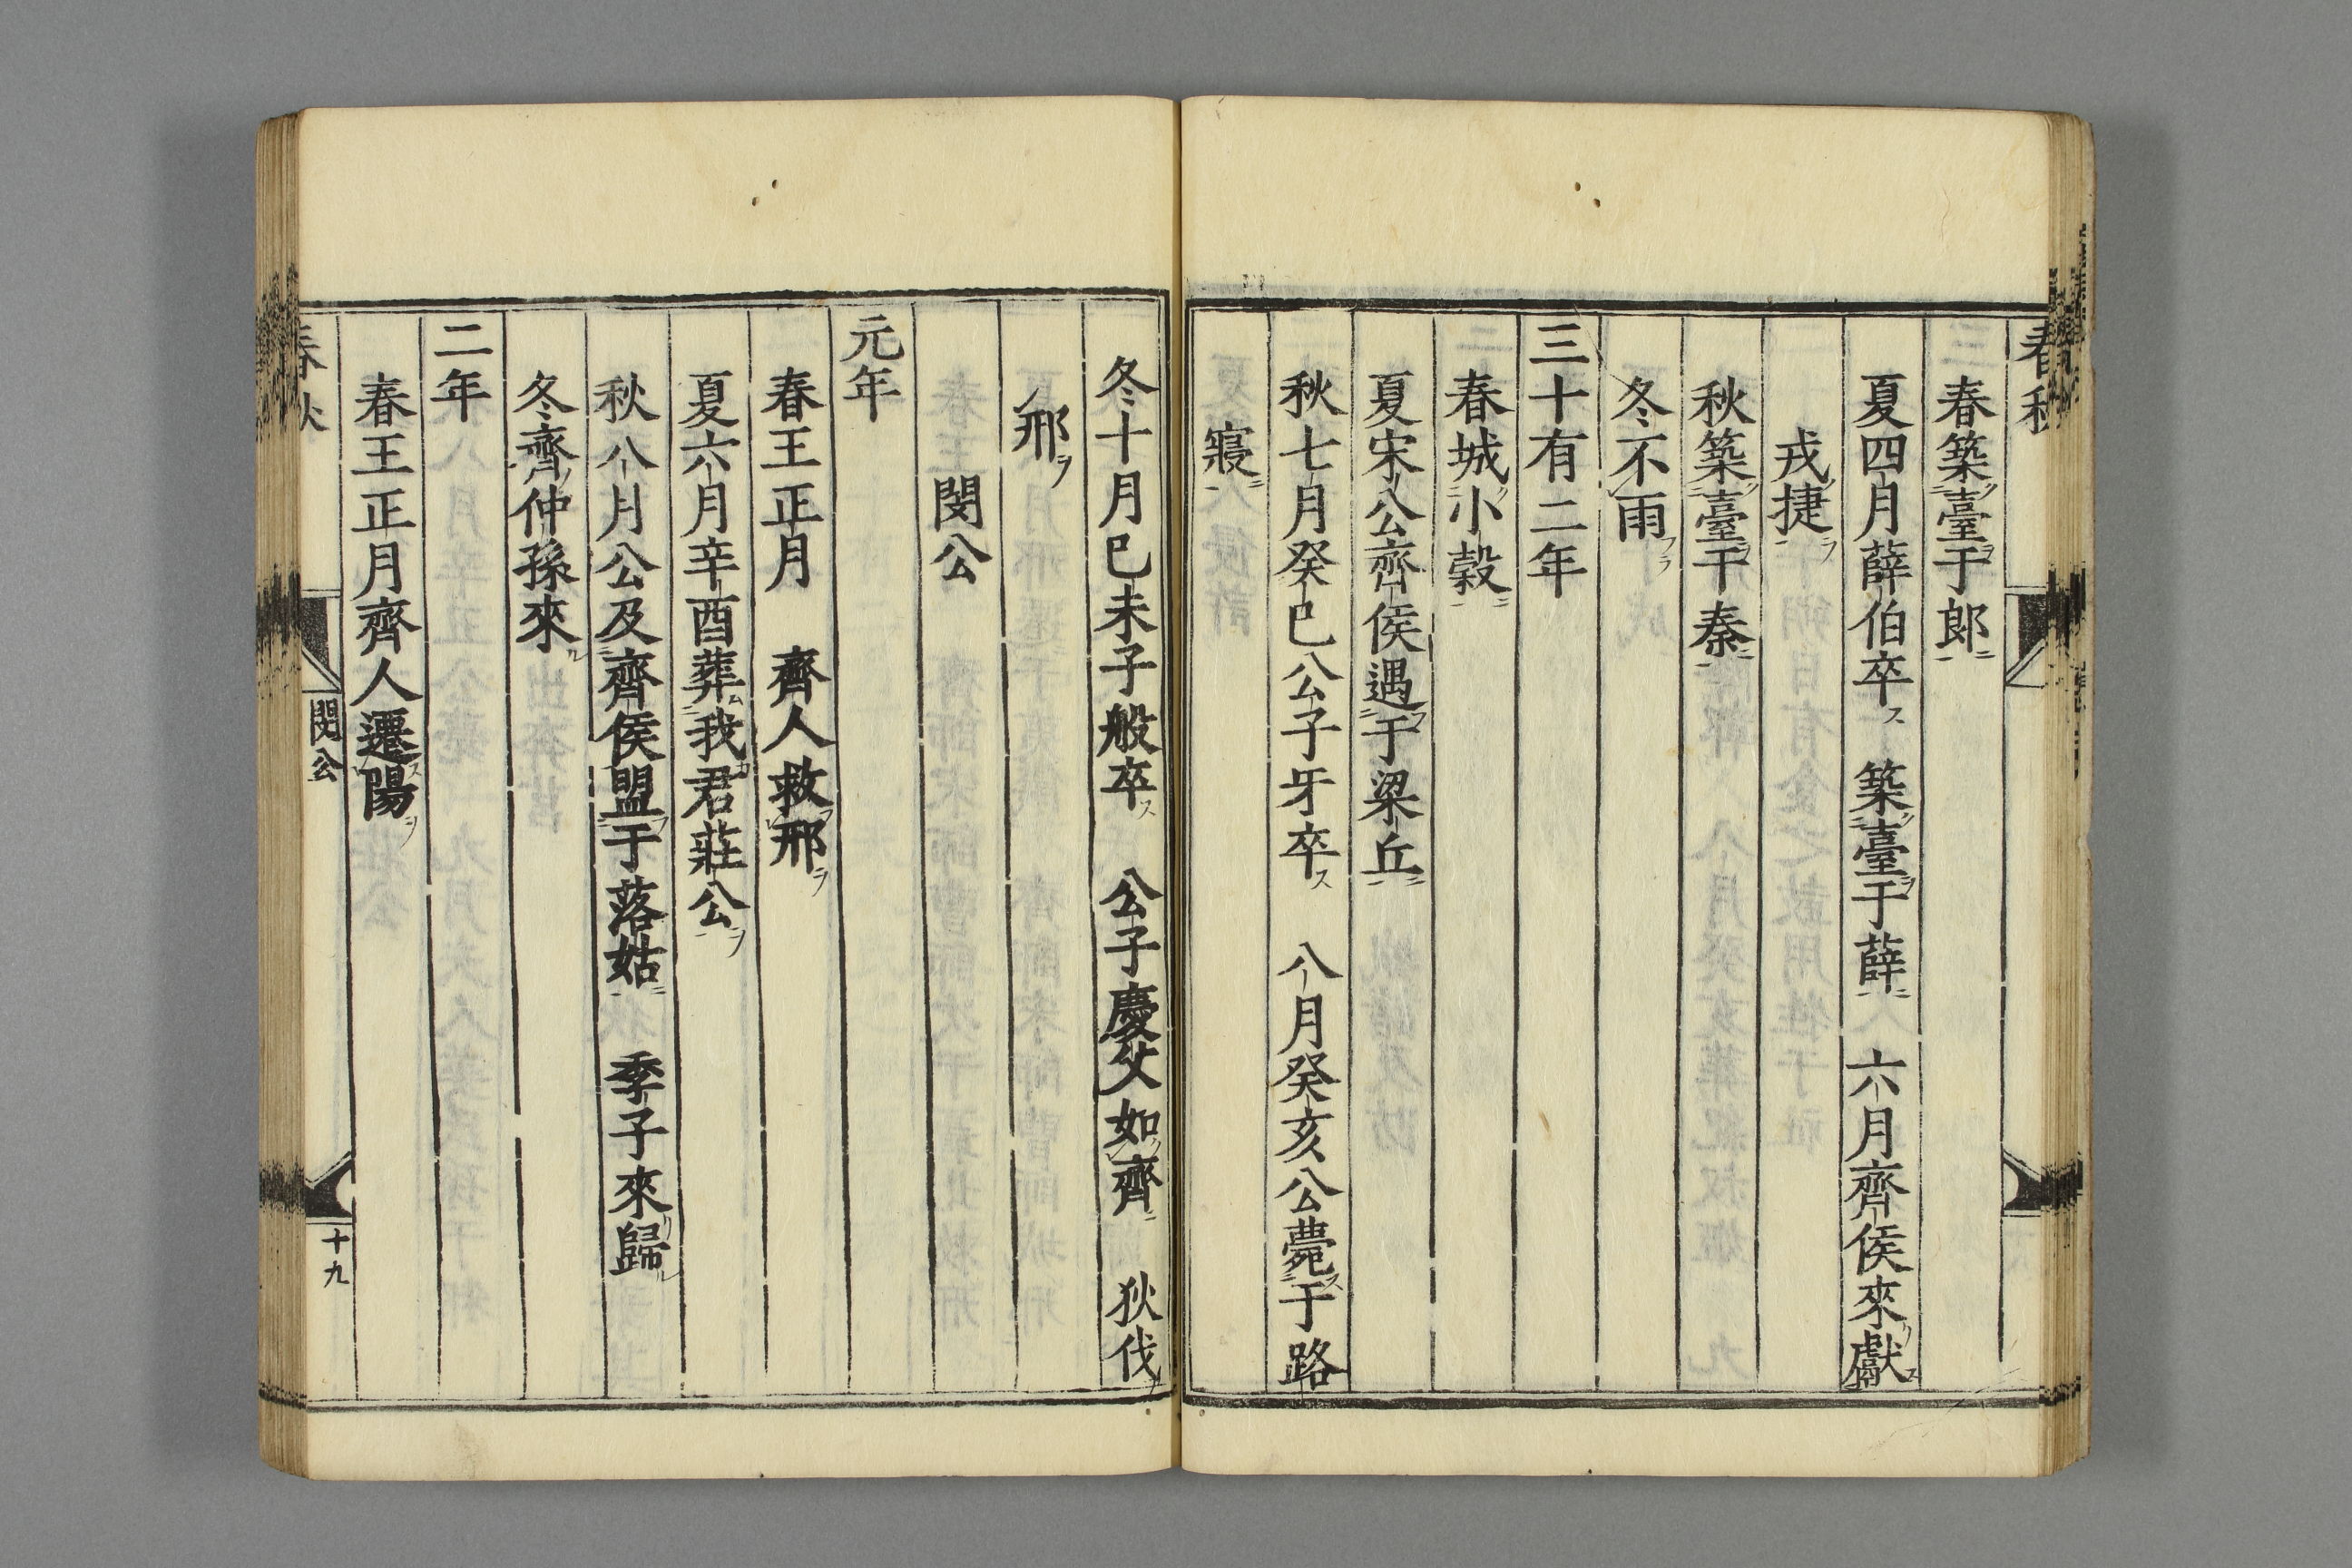 春秋
春築臺于郎
夏四月薛伯卒　築臺于薛　六月齊侯來獻
戎捷
秋築臺于秦
冬不雨
三十有二年
春城小穀
夏宋公齊侯遇于梁丘
秋七月癸巳公子牙卒　八月癸亥公薨于路
寢
冬十月己未子般卒　公子慶父如齊　狄伐
邢
閔公
元年
春王正月　齊人救邢
夏六月辛酉葬我君莊公
秋八月公及齊侯盟于落姑　季子來歸
冬齊仲孫來
二年
春王正月齊人遷陽
春秋
閔公
十九